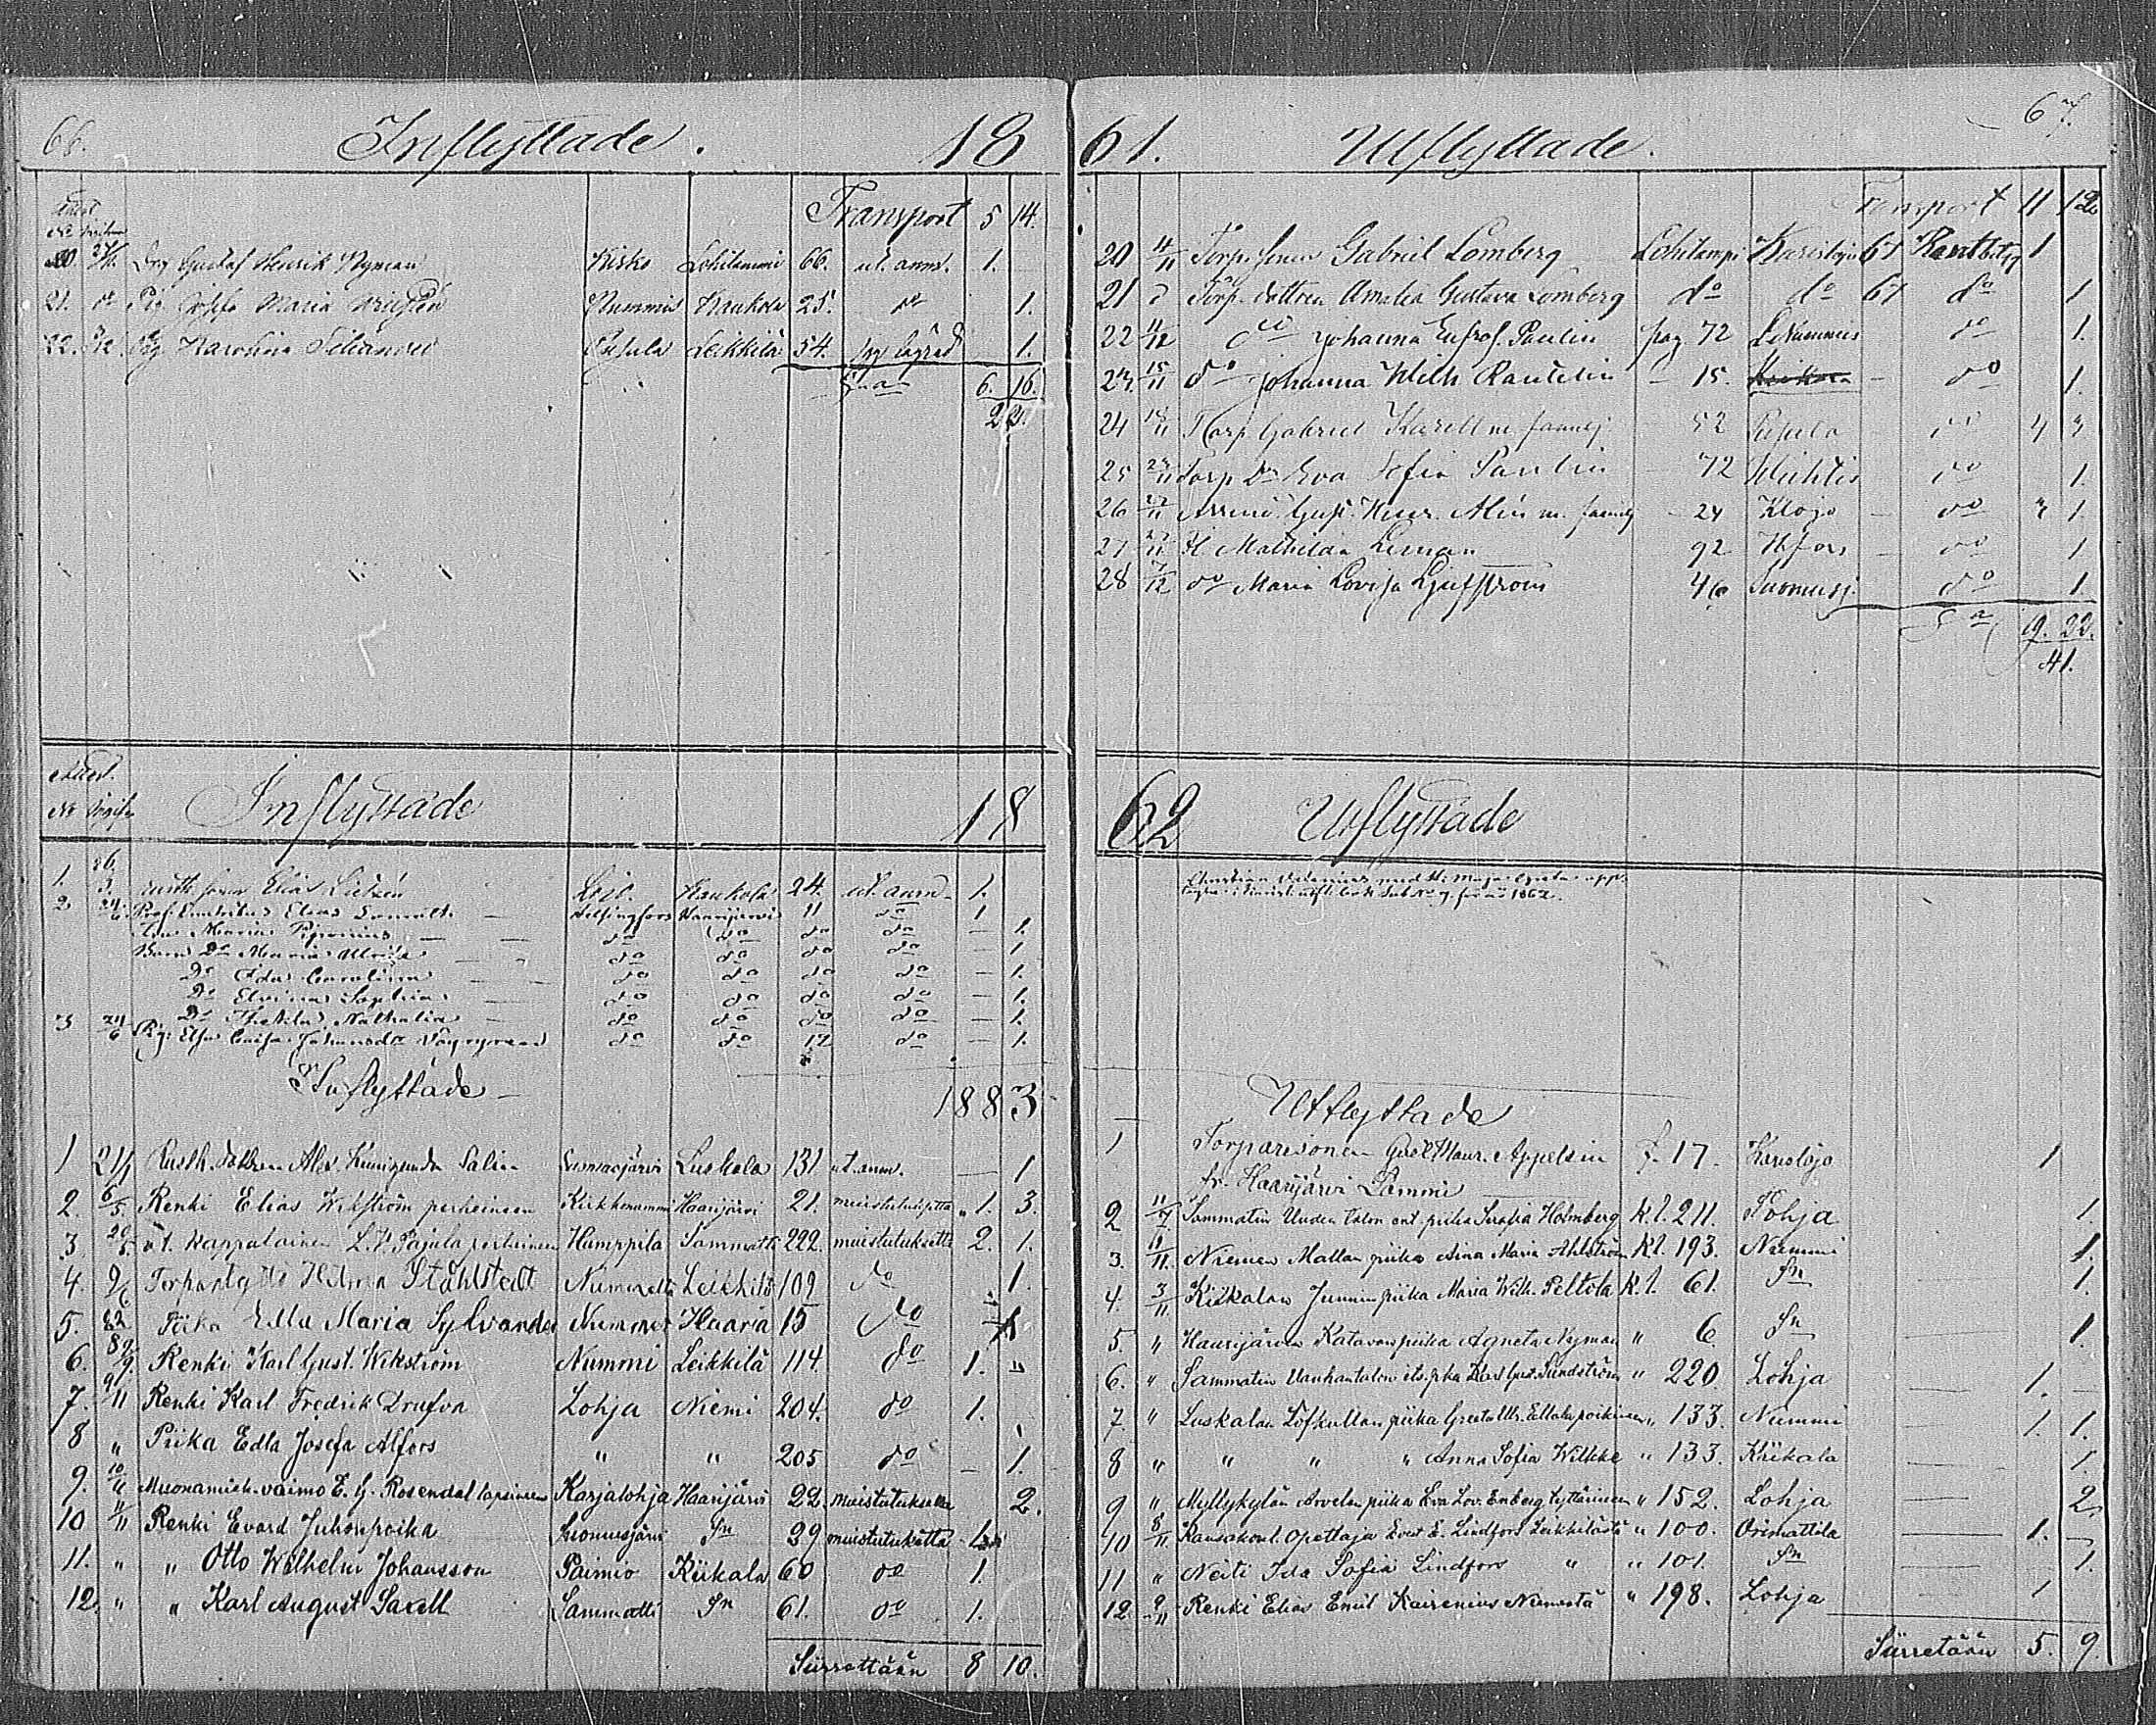 66. Inflyttade. 18
Transport 5 14.
20 Drg Gustaf Henrik Nyman Kisko Lohilammi 66. ut. anm. 1.
21. do Pig Maria Nummis Haukola 25. do 1.
22. Pig Karolina Pusula Leikkilä 54. 1.
Sua 6. 16.
22.
Attest.
No Inflyttade 18
1. Elias Lojo Haukola 24. ut. anm. 1.
2 24/6 Prof. Emeritus Elias Lönnrot — Helsingfors Haarijärvi 11 do 1
Maria Piponius — — do do do do — 1.
Barn Dr Maria Ulrika — do do do do — 1
Do Ida Carolina — do do do do — 1.
Do Elvina Sophia — do do do do — 1.
Do Thekla Nathalia — do do do do — 1.
3 24/6 Pig: Elsa Caisa Johansdr do do 12 do — 1.
Inflyttade — 1883
1 21/1 Rusth. dottren Alex. Kunigunda Salin Suomusjärvi Luskala 131 ut. anm. — 1
2. 6/5. Renki Elias Wikström perheineen Kirkkonummi Haarijärvi 21. muistutuksetta „ 1. 3.
3 20/5. v.t. Kappalainen L. P. Pajula perheineen Humppila Sammatti 222. muistutuksetta 2. 1.
4. 9/6 Torpantyttö Hilma Ståhlstedt Nummelta Leikkilä 109 do 1.
5. Piika Edla Maria Sylvander Nummi Haaria 15 do 1
6. Renki Karl Gust. Wikström Nummi Leikkilä 114. do 1. „
7. 9/11 Renki Karl Fredrik Drufva Lohja Niemi 204. do 1.
8 „ Piika Edla Josefa Alfors „ „ 205 do — 1.
9. 10/11 Muonamieh. vaimo E. G. Rosendal lapsineen Karjalohja Haarijärvi 22. muistutuksetta 2.
10 11/11 Renki Evard Juhonpoika Suomusjärvi Sn 29 muistutuksetta 1.
11. „ „ Otto Wilhelm Johansson Paimio Kiikala 60 do 1.
12. „ „ Karl August Saxell Sammatti Sn 61. do 1.
Siirrettään 8 10.
61. Utflyttade. 67.
Transport 11 12
20 4/11 Torp. sonen Gabriel Lomberg Lohilampi Karislojo 61 1
21 d Torp. dottren Amalia Gustava Lomberg do do 61 do 1
22 11/12 do Johanna Eufros. Paulin pag 72 Nummis do 1.
23. 15/11 do Johanna Wilh Rautelin — 15. — do 1.
24 18/11 Torp Gabriel Karell m. familj — 52 Pusula — do 4 3
25 27/11 Torp Dr Eva Sofia Paulin — 72 Wichtis do 1.
26 27/11 Gust. Henr. Alén m. familj — 24 — do 3 1
27 27/11 H. Mathilda Leman 92 Hfors — do 1
28 7/12 do Maria Lovisa 46 Suomusj. do 1.
Sa 19. 22.
41.
62 Utflyttade
Utflyttade
1 Torparesonen Gust. Maur. Appelsin f. 17. Karislojo 1
fr. Haarijärvi Lammi
2 11/7 Sammatin Uuden talon ent. piika Serafia Holmberg K.l. 211. Pohja 1.
3. 10/11. Niemen Mallan piika Aina Maria Ahlström K.l. 193. Nummi 1.
4. 3/11 Kiikalan Junnin piika Maria Wilh. Peltola K.l. 61. Sn 1.
5. „ Haarijärven Katavan piika Agneta Nyman „ 6 Sn 1.
6. „ Sammatin Vanhantalon its. pka Karl Gust. Sundström „ 220. Lohja 1. —
7. „ Luskalan Löfkullan piika Greta Ulr. poikineen „ 133. Nummi 1. 1.
8 „ „ „ „ Anna Sofia Wilkke „ 133. Kiikala 1.
9 „ Myllykylän Arvelan piika Eva Lov. Enberg tyttärineen „ 152. Lohja 2.
10 8/11 Kansakoul. Opettaja Evert E. Lindfors Leikkilästä „ 100. Orimattila 1. —
11 „ Neiti Ida Sofia Lindfors „ „ 101. Sn 1.
12. 9/11 Renki Elias Emil Kairenius Niemestä „ 198. Lohja 1
Siirretään 5. 9.